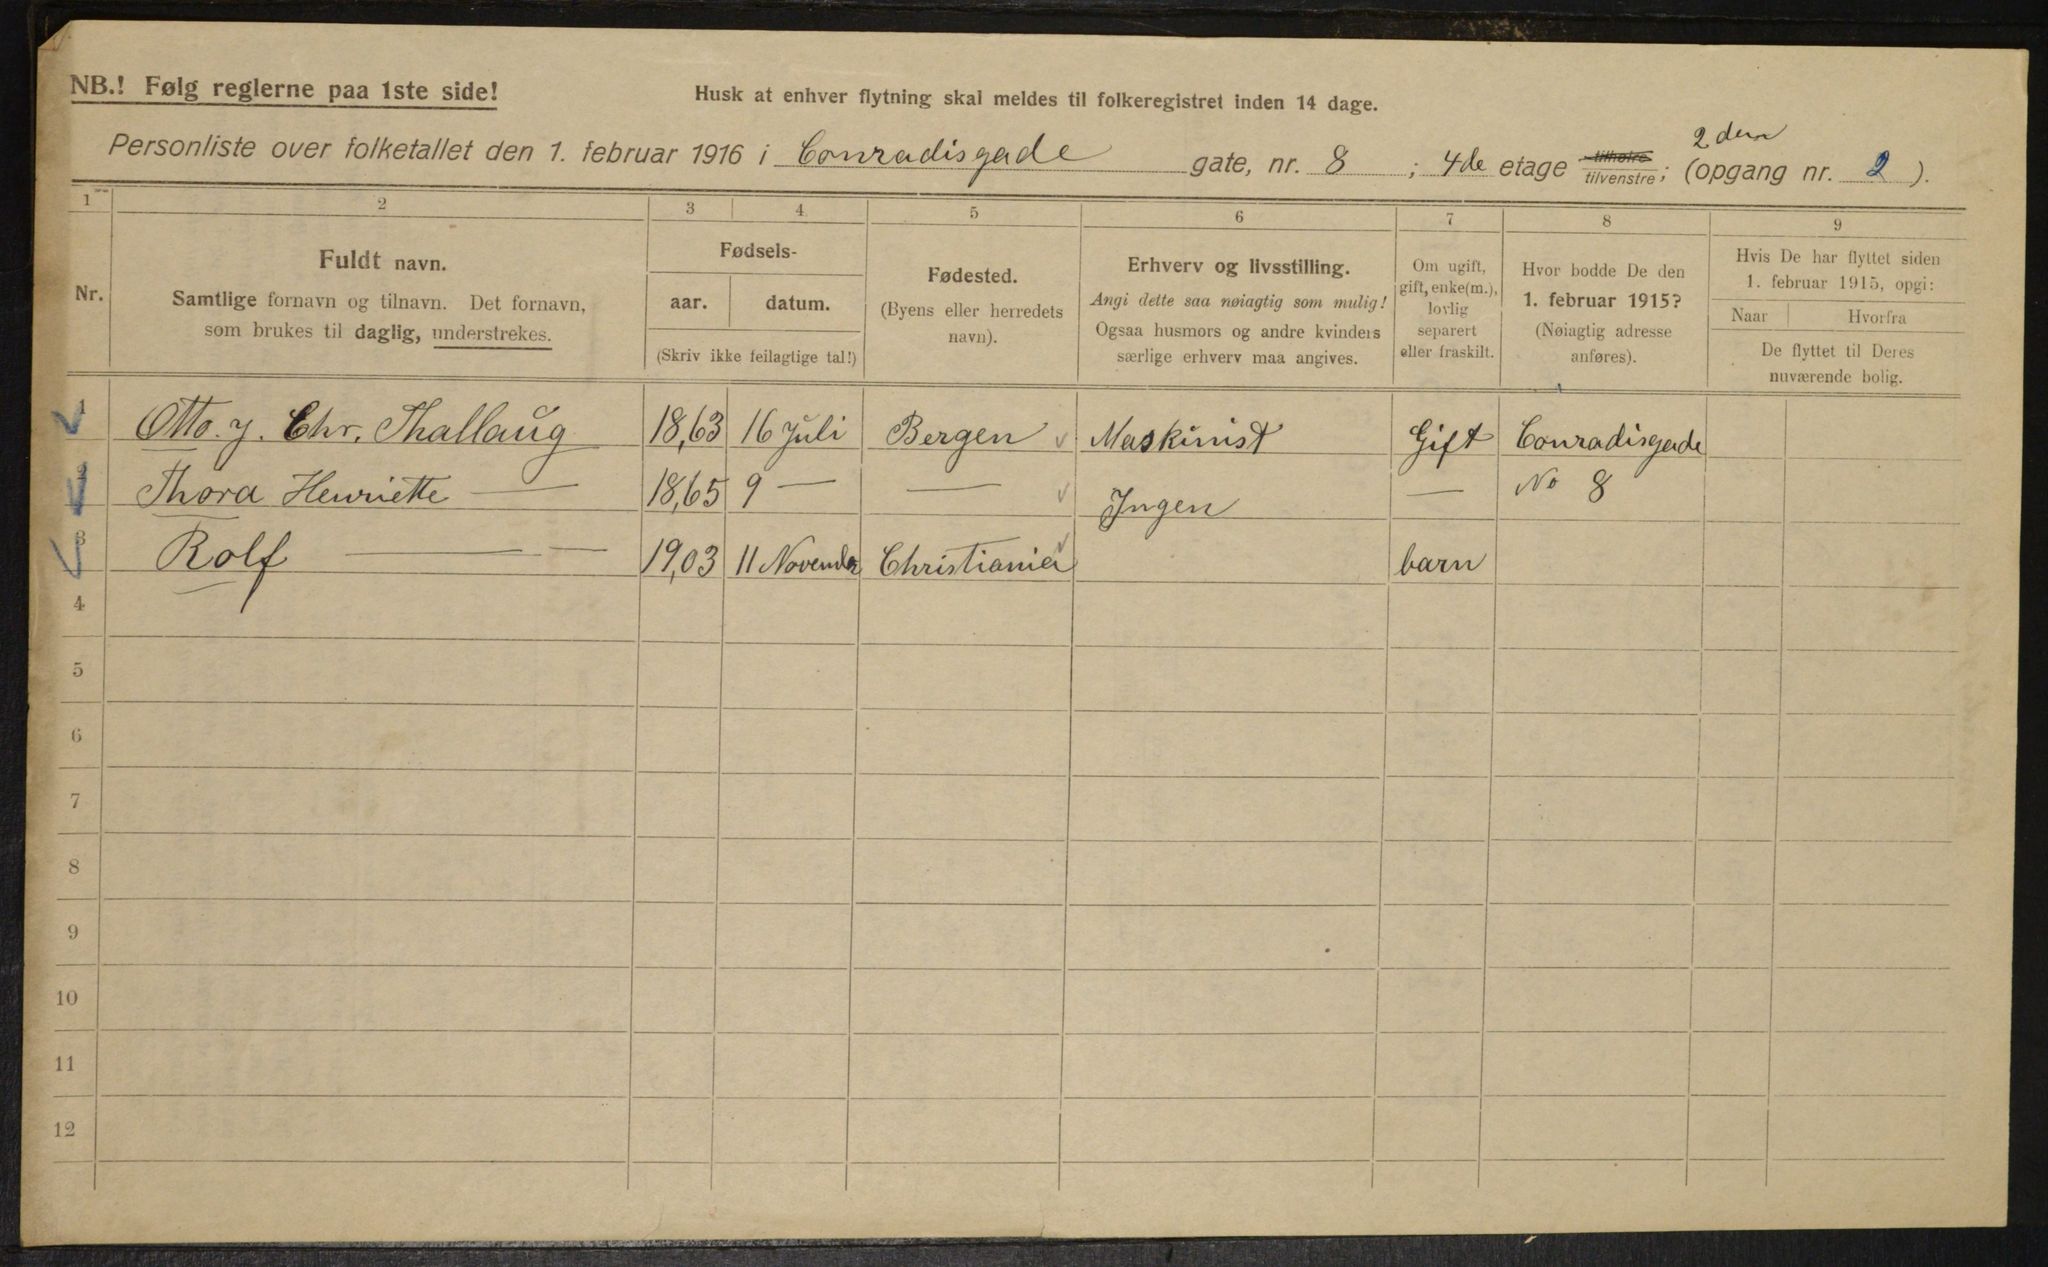 NB.! Følg reglerne paa 1ste side!
Husk at enhver flytning skal meldes til folkeregistret inden 14 dage.
Personliste over folketallet den 1. februar 1916 i Conradisgade gate, nr. 8 ; 4de etage tilhøire tilvenstre; 2den (opgang nr. 2 ).
1 2 3 4 5 6 7 8 9
Nr.
Fuldt navn.
Samtlige fornavn og tilnavn. Det fornavn,
som brukes til daglig, understrekes.
Fødsels-
aar. datum.
(Skriv ikke feilagtige tal!)
Fødested.
(Byens eller herredets
navn).
Erhverv og livsstilling.
Angi dette saa nøiagtig som mulig!
Ogsaa husmors og andre kvinders
særlige erhverv maa angives.
Om ugift,
gift, enke(m.),
lovlig
separert
eller fraskilt.
Hvor bodde De den
1. februar 1915?
(Nøiagtig adresse
anføres).
Hvis De har flyttet siden
1. februar 1915, opgi:
Naar Hvorfra
De flyttet til Deres
nuværende bolig.
1 Otto. J. Chr. Thallaug 18,63 16 Juli Bergen Maskinist Gift Conradisgade
2 Thora Henriette — 18,65 9 — — Ingen — No 8
3 Rolf — — 19,03 11 November Christiania barn
4
5
6
7
8
9
10
11
12